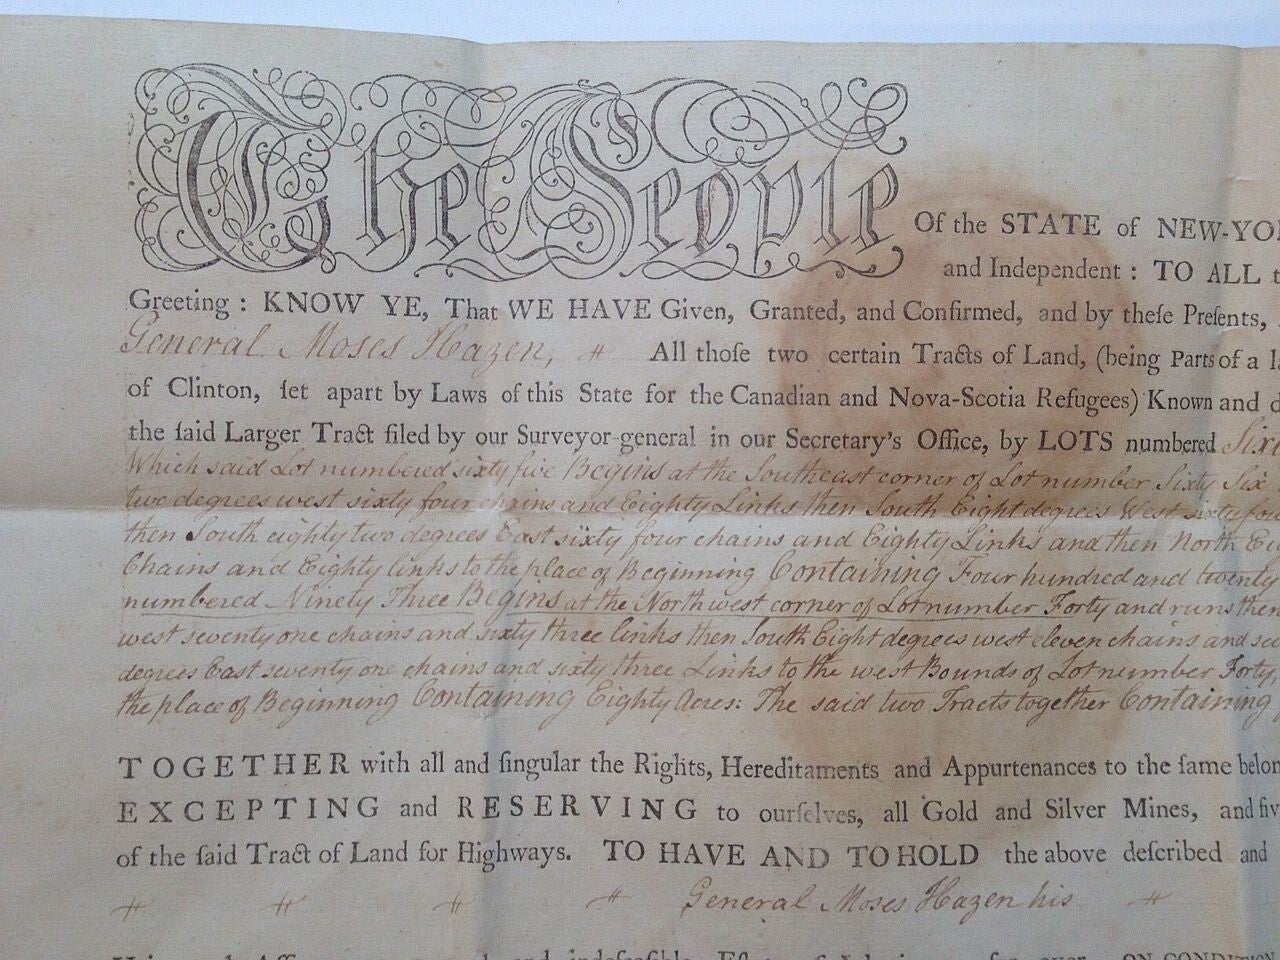 The People Of the STATE of NEW-YO
and Independent : TO ALL t
Greeting : KNOW YE, That WE HAVE Given, Granted, and Confirmed, and by theſe Preſents,
General Moses Hazen, All thoſe two certain Tracts of Land, (being Parts of a la
of Clinton, ſet apart by Laws of this State for the Canadian and Nova-Scotia Refugees) Known and d
the ſaid Larger Tract filed by our Surveyor-general in our Secretary's Office, by LOTS numbered Sixt
Which said Lot numbered sixty five Begins at the Southeast corner of Lot number Sixty Six
two degrees west sixty four chains and Eighty Links then South Eight degrees West sixty fou
then South eighty two degrees East sixty four chains and Eighty Links and then North Ei
Chains and Eighty links to the place of Beginning Containing Four hundred and twenty
numbered Ninety Three Begins at the North west corner of Lot number Forty and runs then
west seventy one chains and sixty three links then South Eight degrees west eleven chains and se
degrees East seventy one chains and sixty three Links to the west Bounds of Lot number Forty,
the place of Beginning Containing Eighty Acres: The said two Tracts together Containing
TOGETHER with all and ſingular the Rights, Hereditaments and Appurtenances to the ſame belon
EXCEPTING and RESERVING to ourſelves, all Gold and Silver Mines, and fiv
of the ſaid Tract of Land for Highways. TO HAVE AND TO HOLD the above deſcribed and
General Moses Hazen his
and indefeaſible ON CONDITION